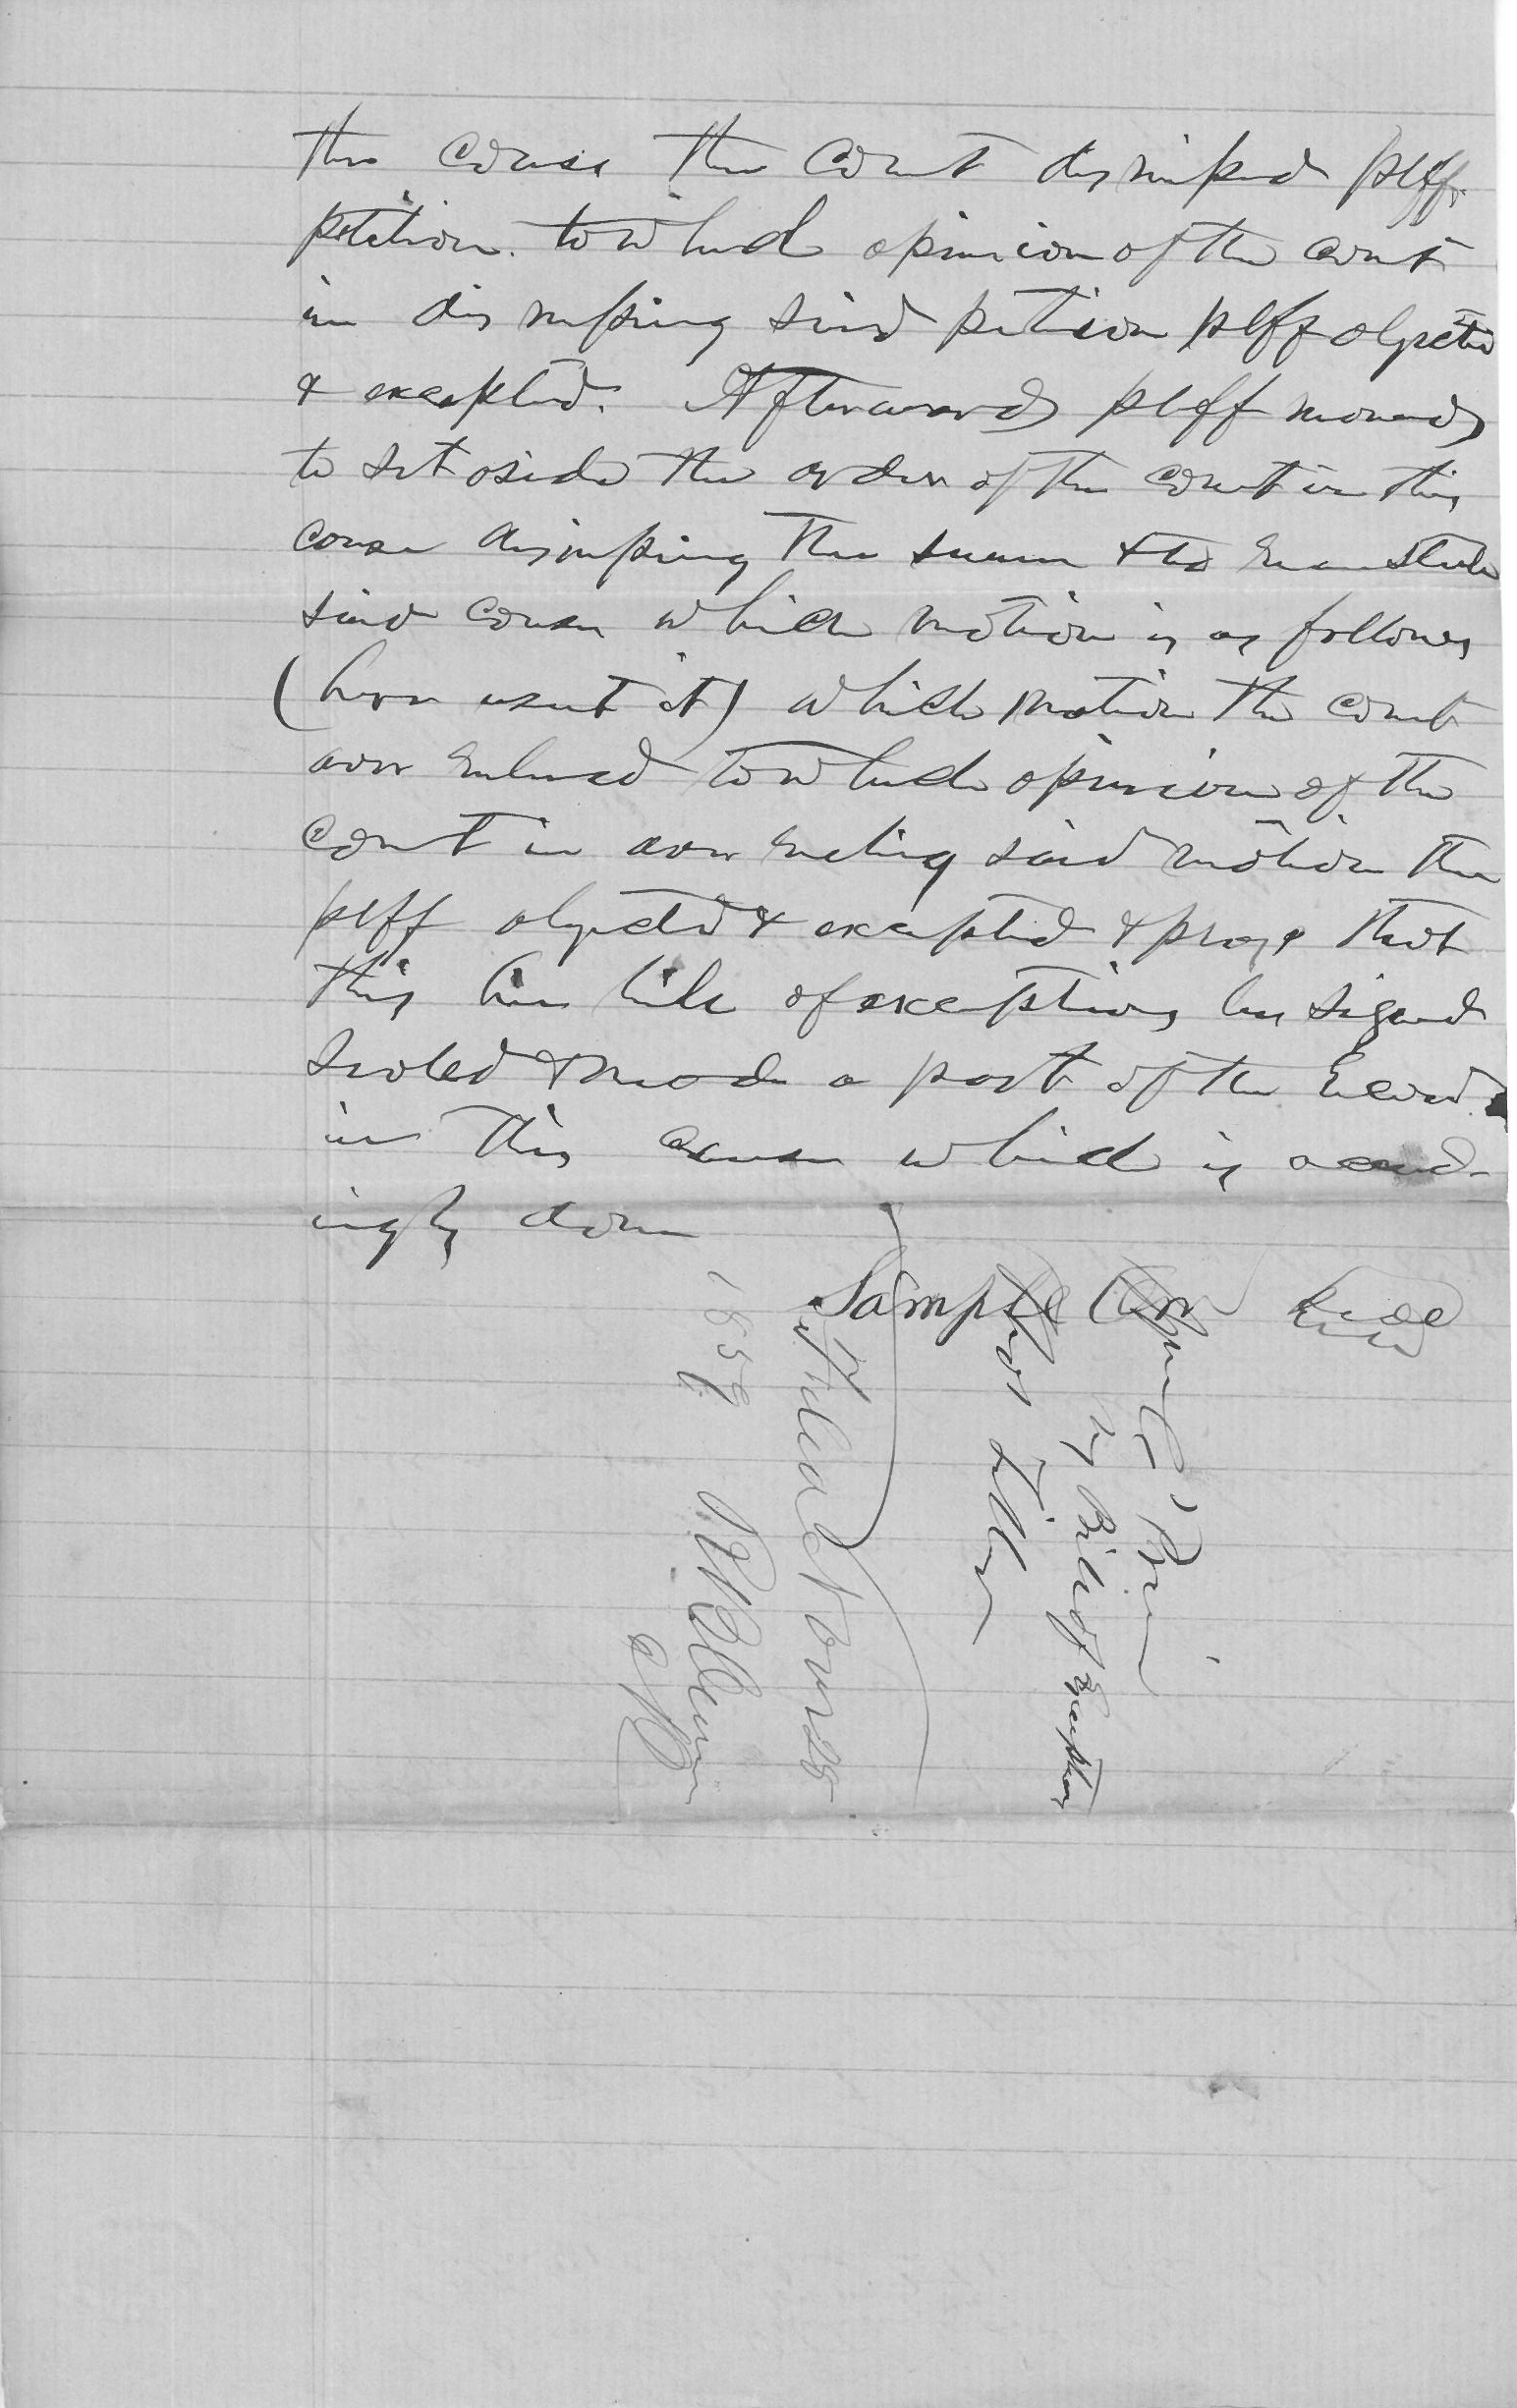 this cause the court dismissed plff.
petition. to which opinion of the court
in dismissing said petition plff objected
& excepted. Afterwards plff moved
to set aside the order of the court in this
cause dismissing the same & to reinstate
said cause which motion is as follows
(here insert it) which motion the court
over ruled to which opinion of the
court in over ruling said motion the
plff objected & excepted & prays that
this his bill of exceptions be signed
sealed & made a part of the record
in this cause which is accord-
ingly done
Sample Orr
Seal
Bill of Exceptions
Filed
1859